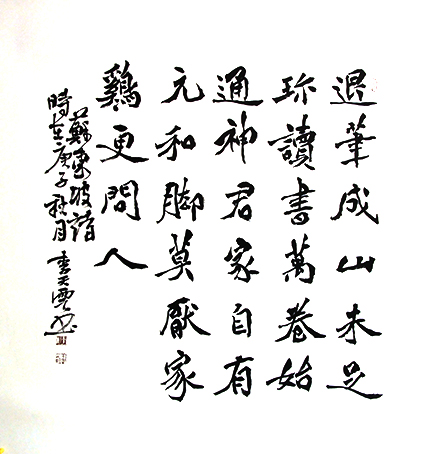 退筆成山未足
珎讀書萬卷始
通神君家自有
元和脚莫厭家
鷄更問人
蘇東坡詩
時在庚子秋月